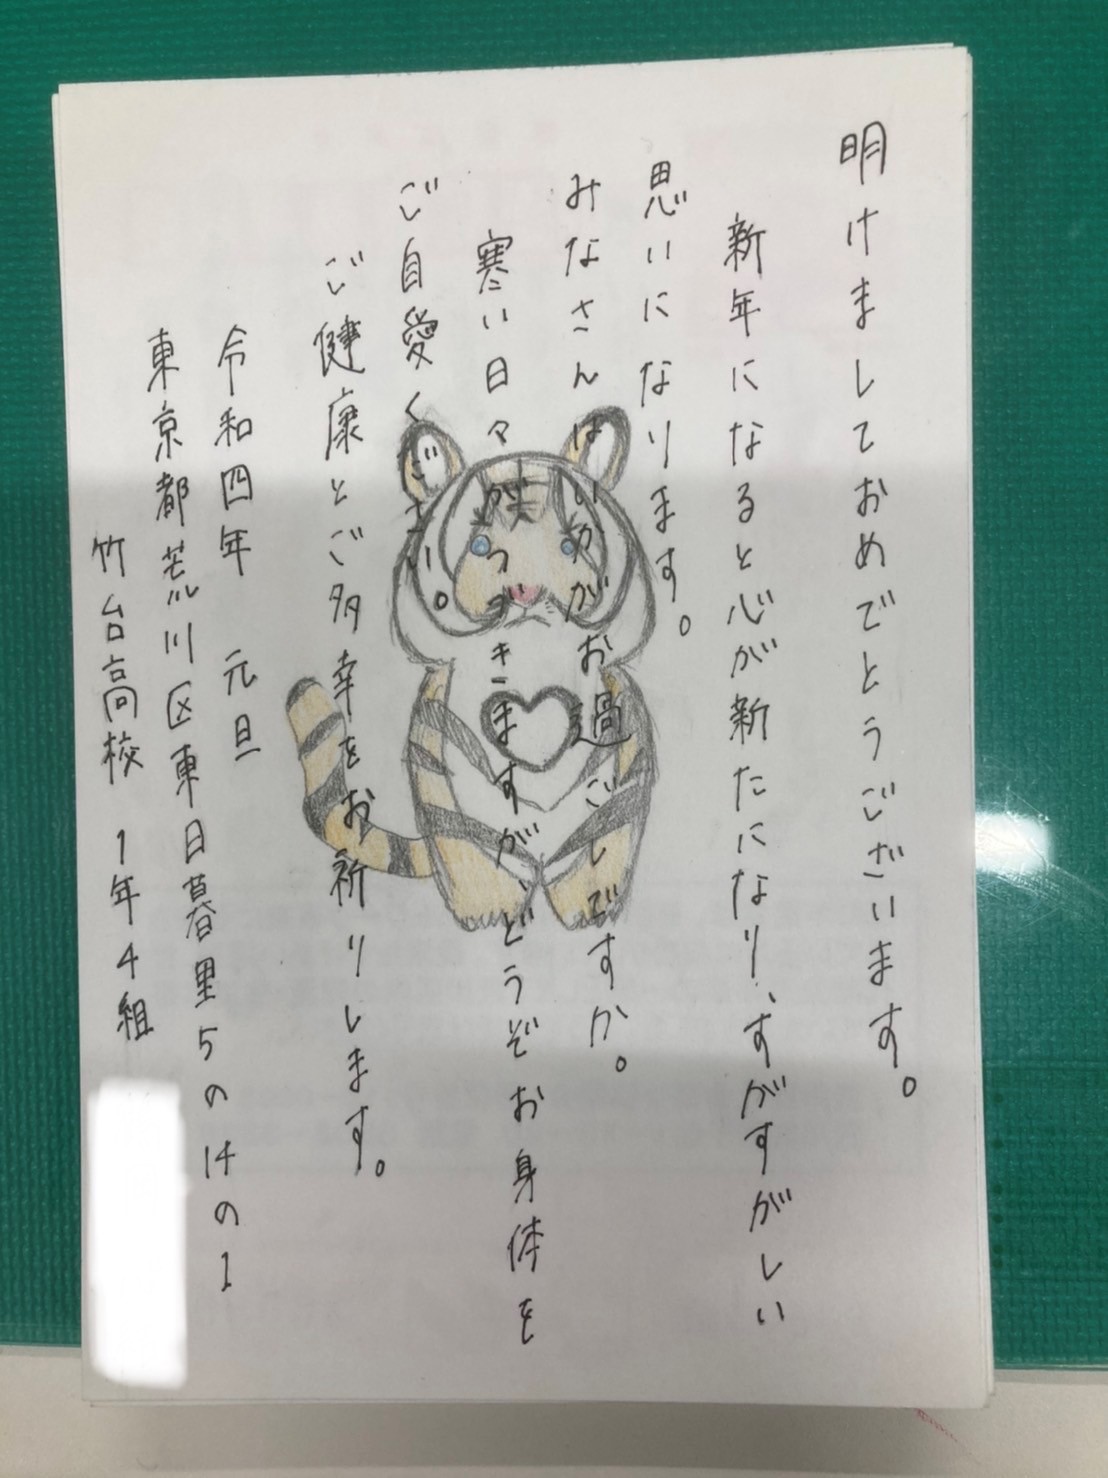 明けましておめでとうございます。
新年になると心が新たになり、すがすがしい
思いになります。
みなさんはいかがお過ごしですか。
寒い日々がつづきますが、どうぞお身体を
ご自愛ください。
ご健康とご多幸をお祈りします。
令和四年 元旦
東京都荒川区東日暮里5の14の1
竹台高校 1年4組